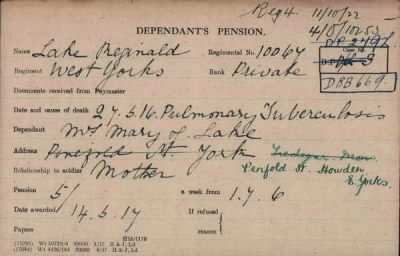 Reg 4 11/10/22
4/D/10253
DEPENDANT'S PENSION.
DP 2492
Name Lake Reginald Regimental No. 10064
Regiment West Yorks Rank Private
DRB 669.
Documents received from Paymaster
Date and cause of death 27.5.16. Pulmonary Tuberculosis
Dependant Mrs Mary J. Lake
Address Penfold St. York Tredegar Mon.
Penfold St. Howden
E. Yorks.
Relationship to soldier Mother
Pension 5/ a week from 1.7.6
Date awarded 14.5.17 If refused
Papers reason